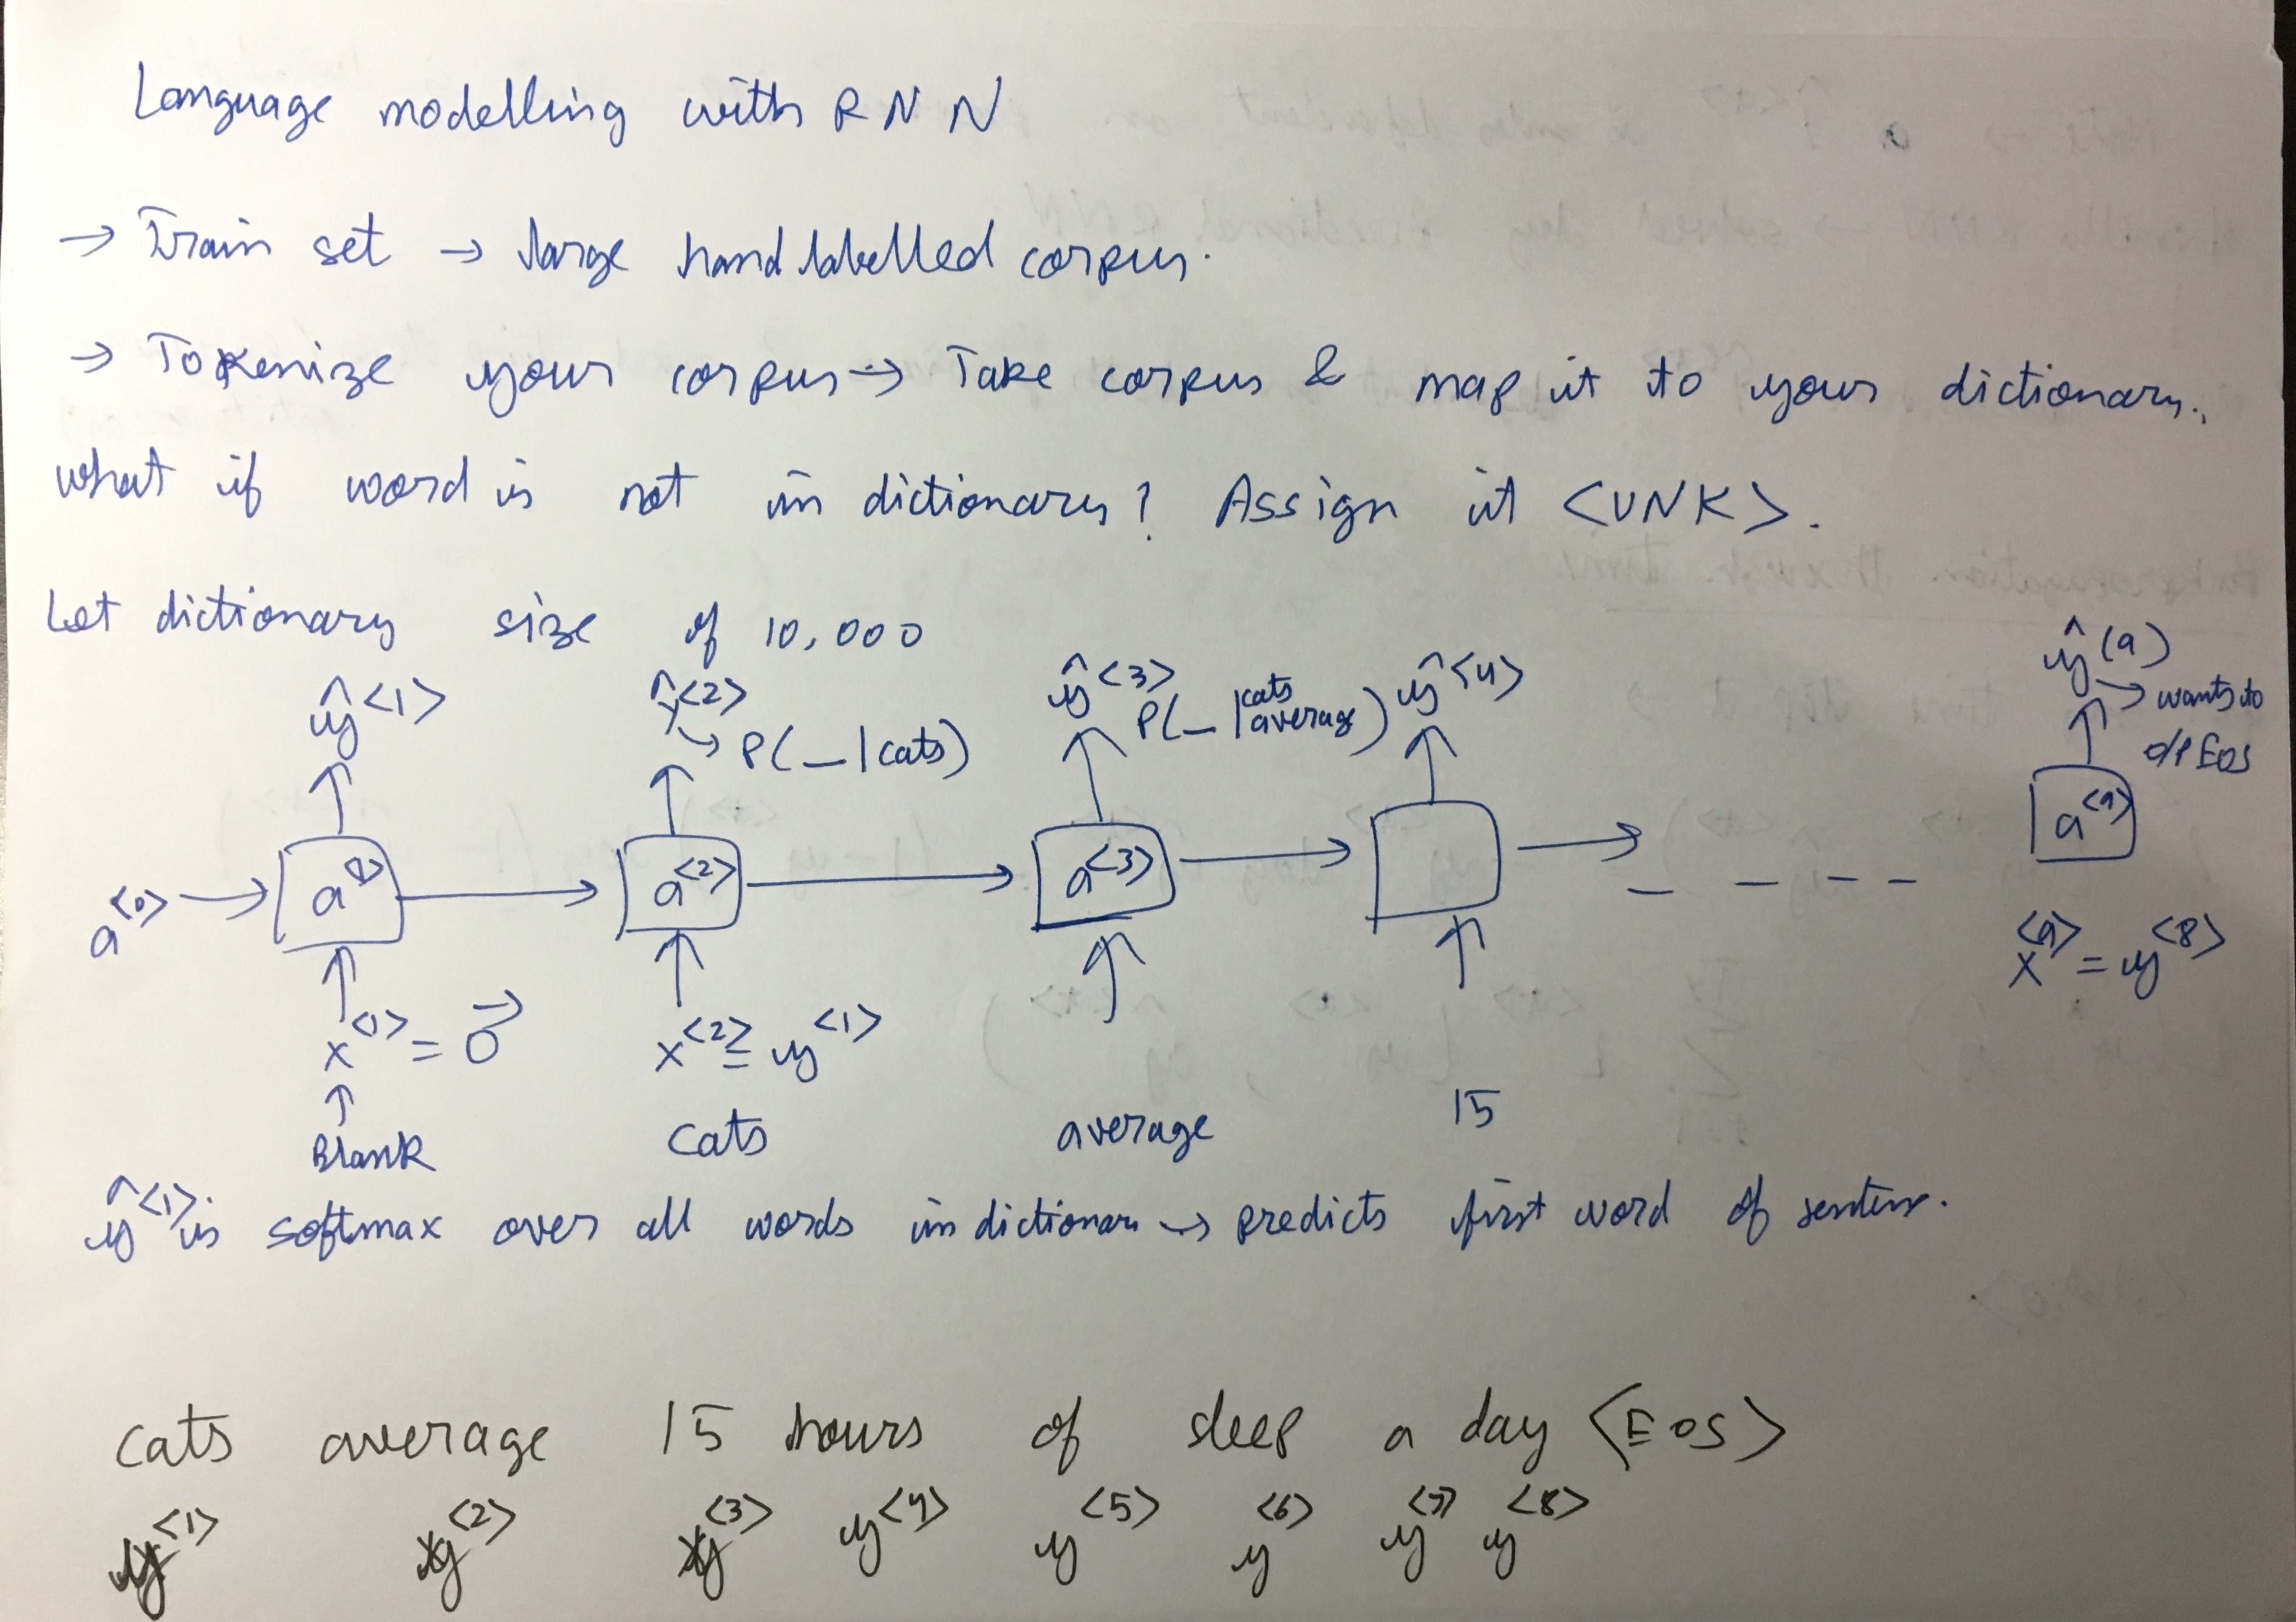 Language modelling with RNN
→ Train set → large hand labelled corpus.
→ Tokenize your corpus → Take corpus & map it to your dictionary.
what if word is not in dictionary? Assign it <UNK>.
Let dictionary size of 10,000
ŷ<1> ŷ<2> ŷ<3> ŷ<4> ŷ(9)
→ P(_ | cats) P(_ | cats average) → wants to o/p EOS
a<0> → a<1> → a<2> → a<3> → → _ _ _ _ a<9>
x<1> = 0⃗ x<2> = y<1> x<9> = y<8>
Blank cats average 15
ŷ<1> is softmax over all words in dictionary → predicts first word of sentence.
cats average 15 hours of sleep a day <EOS>
y<1> y<2> y<3> y<4> y<5> y<6> y<7> y<8>